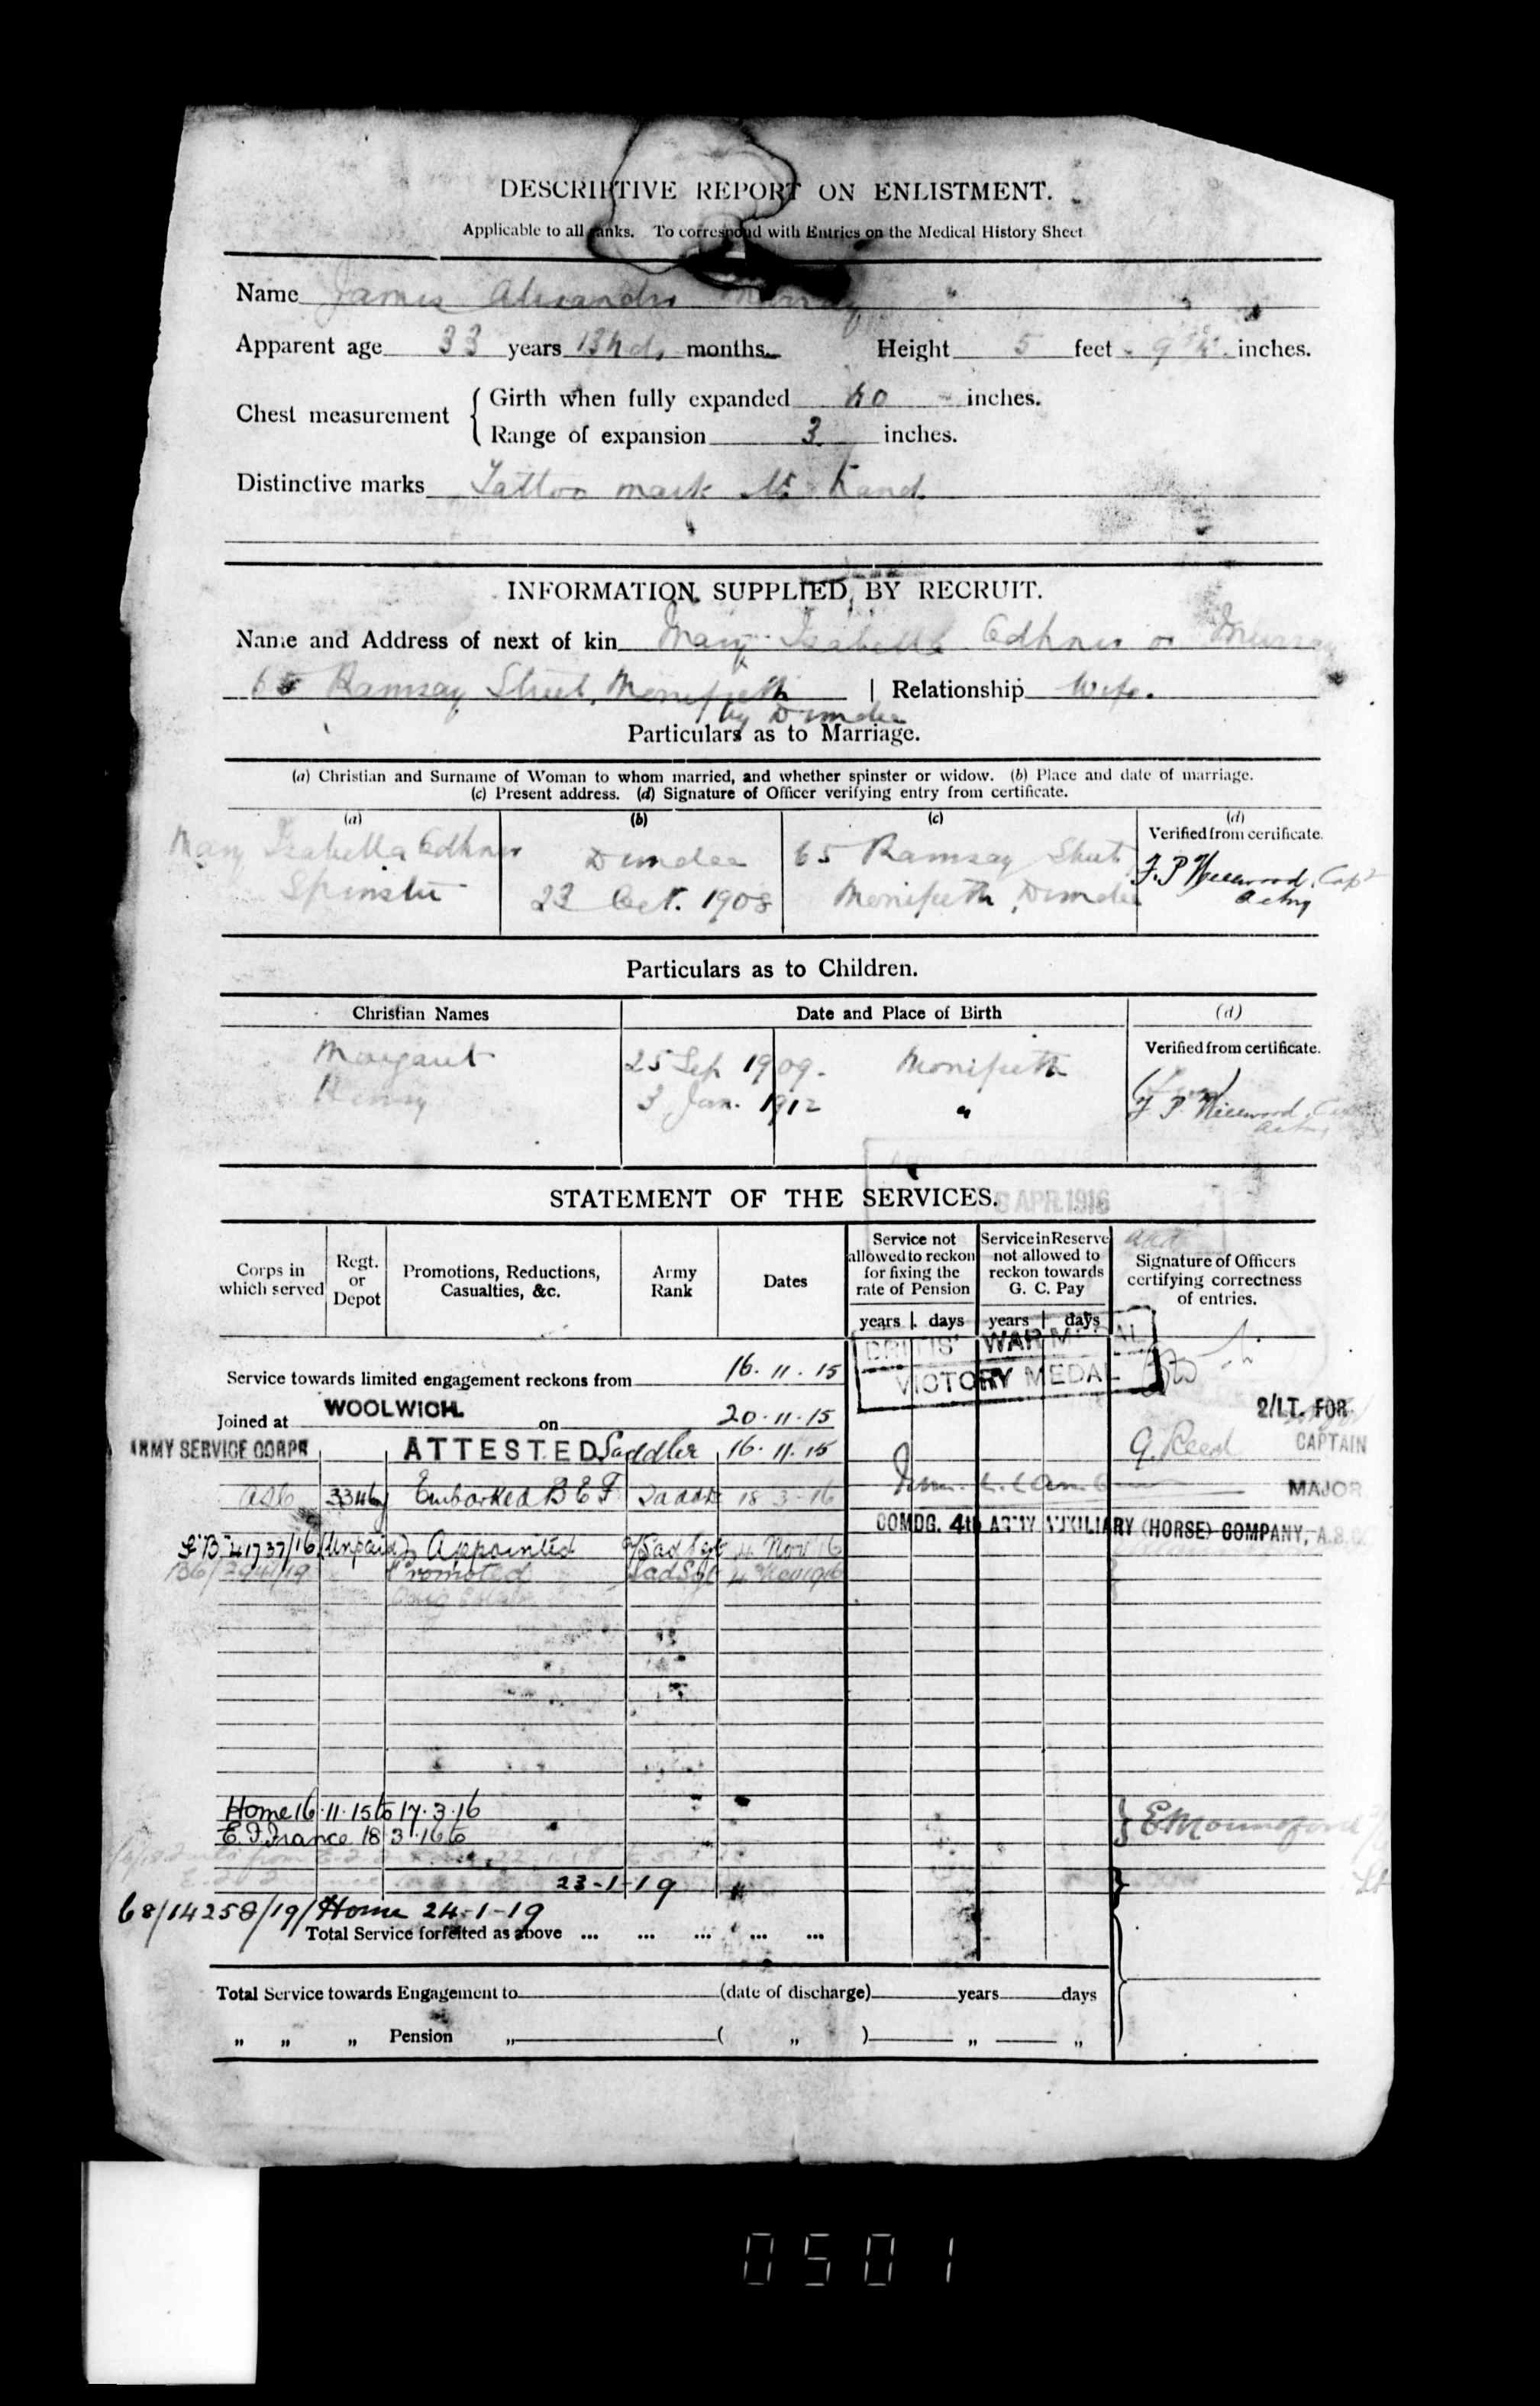 DESCRIPTIVE REPORT ON ENLISTMENT.
Applicable to all ranks. To correspond with Entries on the Medical History Sheet
Name James Alexander Murray
Apparent age 33 years months. Height 5 feet 9 inches.
Chest measurement { Girth when fully expanded 40 inches.
Range of expansion 3 inches.
Distinctive marks Tattoo mark hand.
INFORMATION SUPPLIED BY RECRUIT.
Name and Address of next of kin Mary Isabella or Murray
65 Ramsay Street, Monifieth | Relationship Wife.
by Dundee
Particulars as to Marriage.
(a) Christian and Surname of Woman to whom married, and whether spinster or widow. (b) Place and date of marriage.
(c) Present address. (d) Signature of Officer verifying entry from certificate.
(a) (b) (c) (d)
Verified from certificate.
Mary Isabella Dundee 65 Ramsay Street
Spinster 23 Oct. 1908 Monifieth, Dundee F. P. Capt
Particulars as to Children.
Christian Names Date and Place of Birth (d)
Verified from certificate.
Margaret 25 Sep 1909. Monifieth
Henry 3 Jan. 1912 "
F. P.
STATEMENT OF THE SERVICES.
APR 1916
Corps in which served Regt. or Depot Promotions, Reductions, Casualties, &c. Army Rank Dates Service not allowed to reckon for fixing the rate of Pension Service in Reserve not allowed to reckon towards G. C. Pay Signature of Officers certifying correctness of entries.
years days years days
BRITISH WAR MEDAL
VICTORY MEDAL
Service towards limited engagement reckons from 16.11.15
Joined at WOOLWICH. on 20.11.15
2/LT. FOR
ARMY SERVICE CORPS ATTESTED Saddler 16.11.15 G. Reed CAPTAIN
ASC Embarked B E F 18 3 16 MAJOR
COMDG. 4th ARMY AUXILIARY (HORSE) COMPANY, A.S.C.
(Unpaid) Appointed 4 Nov 16
Promoted Sad Sgt
Home 16.11.15 to 17.3.16
E.F. France 18 3.16 to
23-1-19
68/14258/19/ Home 24-1-19
Total Service forfeited as above ... ... ... ... ...
Total Service towards Engagement to (date of discharge) years days
" " " Pension " ( " ) " "
0501